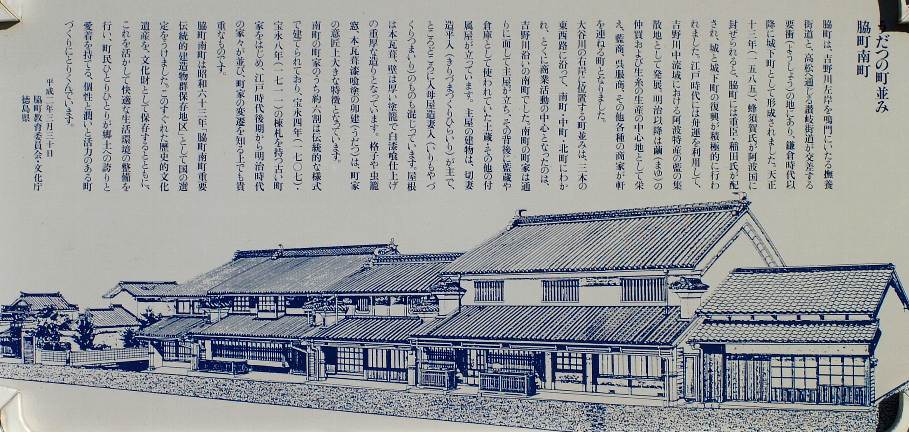 うだつの町並み
脇町南町
脇町は、吉野川左岸を鳴門にいたる撫養
街道と、讃岐、高松へ通じる讃岐街道が交差する
要衝(ようしょう)の地にあり、鎌倉時代以
降に城下町として形成されました。天正
十三年(一五八五)、蜂須賀氏が阿波国に
封ぜられると、脇町には重臣稲田氏が配
され、城と城下町の復興が積極的に行わ
れました。江戸時代には舟運を利用して、
吉野川中流域における阿波特産の藍の集
散地として発展、明治以降は繭(まゆ)の
仲買および生糸の生産の中心地として栄
え、藍商、呉服商、その他各種の商家が軒
を連ねる町となりました。
大谷川の右岸に位置する町並みは、三本の
東西路に沿って、南町・中町・北町にわか
れ、とくに商業活動の中心となったのは、
吉野川沿いの南町でした。南町の町家は通
りに面して主屋が立ち、その背後に藍蔵や
倉庫として使われていた土蔵、その他の付
属屋が立っています。主屋の建物は、切妻
造平入(きりづまづくりひらいり)が主で、
ところどころに入母屋造妻入(いりもやづ
くりつまいり)のものも混じっています。屋根
は本瓦葺、壁は厚い塗籠で白漆喰仕上げ
の重厚な造りとなっています。格子や虫籠
窓、本瓦葺漆喰塗の卯建(うだつ)は、町家
の意匠上大きな特徴となっています。
南町の町家のうち約六割は伝統的な様式
で建てられており、宝永四年(一七〇七)
宝永八年(一七一一)の棟札を持つ古い町
家をはじめ、江戸時代後期から明治時代
の家々が並び、町家の変遷を知る上でも貴
重なものです。
脇町南町は昭和六十三年、「脇町南町重要
伝統的建造物群保存地区」として国の選
定をうけました。このすぐれた歴史的文化
遺産を、文化財として保存するとともに、
これを活かして快適な生活環境の整備を
行い、町民ひとりひとりが郷土への誇りと
愛着を持てる、個性と潤いと活力のある町
づくりにとりくんでいます。
平成二年三月三十日
脇町教育委員会・文化庁
徳島県